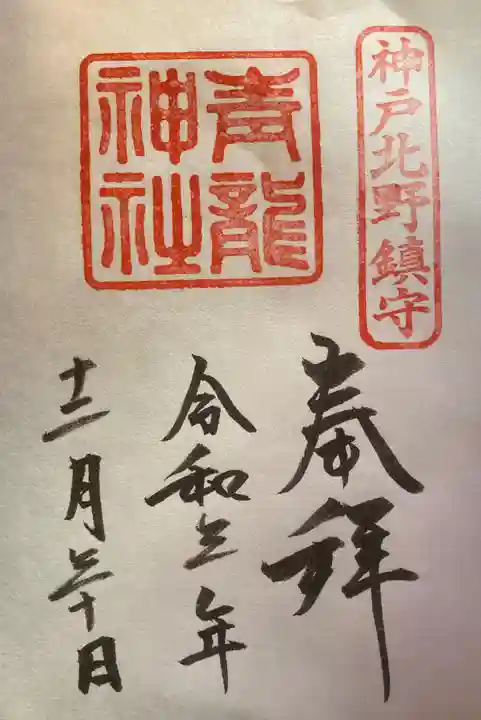 神戸北野鎮守
奉拝
青龍
神社
令和三年
十二月三十日